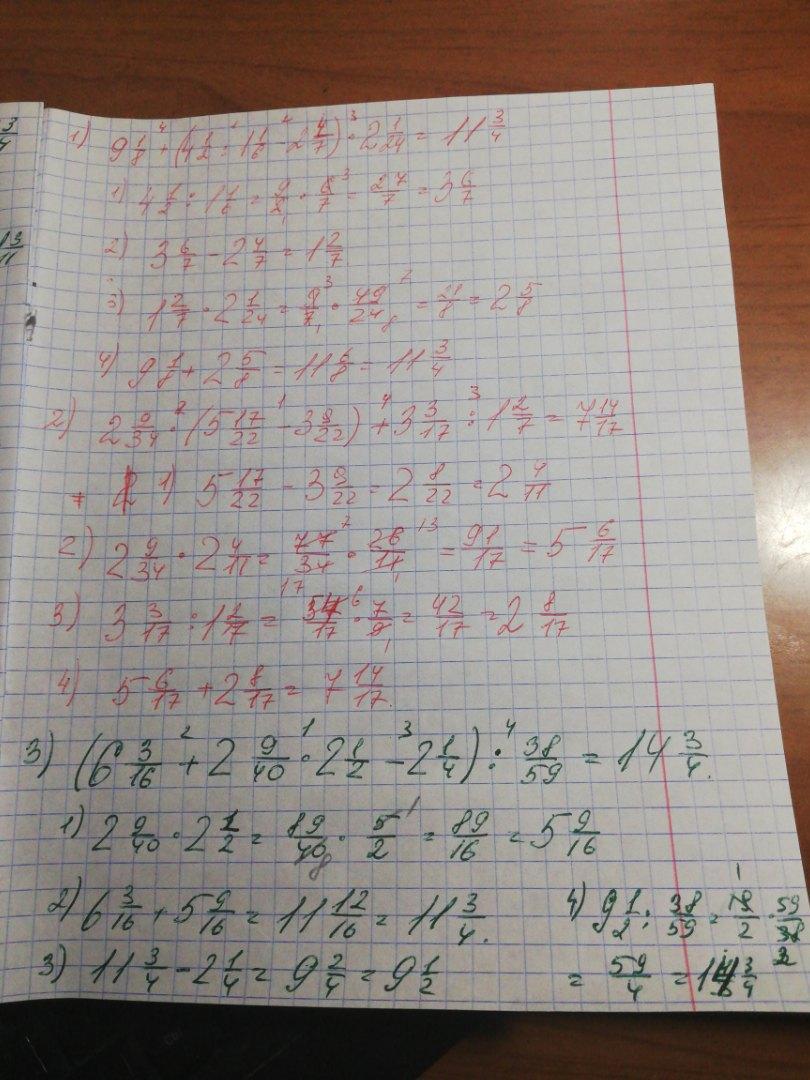 3/4
13/11
1) 9 1/8 + (4 1/2 : 1 1/6 - 2 4/7) · 2 1/24 = 11 3/4
1) 4 1/2 : 1 1/6 = 9/2 · 6/7 = 27/7 = 3 6/7
2) 3 6/7 - 2 4/7 = 1 2/7
3) 1 2/7 · 2 1/24 = 9/7 · 49/24 = 21/8 = 2 5/8
4) 9 1/8 + 2 5/8 = 11 6/8 = 11 3/4
2) 2 9/34 · (5 17/22 - 3 9/22) + 3 3/17 : 1 2/7 = 7 14/17
1) 5 17/22 - 3 9/22 = 2 8/22 = 2 4/11
2) 2 9/34 · 2 4/11 = 77/34 · 26/11 = 91/17 = 5 6/17
3) 3 3/17 : 1 2/7 = 54/17 · 7/9 = 42/17 = 2 8/17
4) 5 6/17 + 2 8/17 = 7 14/17.
3) (6 3/16 + 2 9/40 · 2 1/2 - 2 1/4) : 38/59 = 14 3/4.
1) 2 9/40 · 2 1/2 = 89/40 · 5/2 = 89/16 = 5 9/16
2) 6 3/16 + 5 9/16 = 11 12/16 = 11 3/4.
3) 11 3/4 - 2 1/4 = 9 2/4 = 9 1/2
4) 9 1/2 : 38/59 = 19/2 · 59/38
= 59/4 = 14 3/4